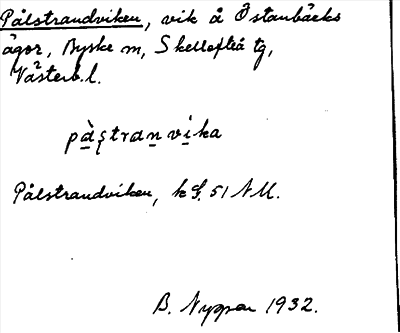 Pålstrandviken, vik å Östanbäcks
ägor, Byske sn, Skellefteå tg,
Västerb. l.
pà̱ʂtraṉvi̱ka
Pålstrandviken, k f. 51 N U.
B. Nygren 1932.